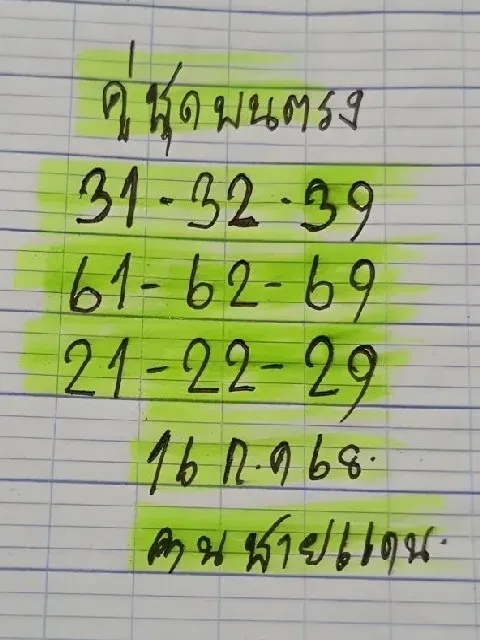 คู่ชุดบนตรง
31-32.39
61-62-69
21-22-29
16 ก.ค 68.
คนชายแดน.